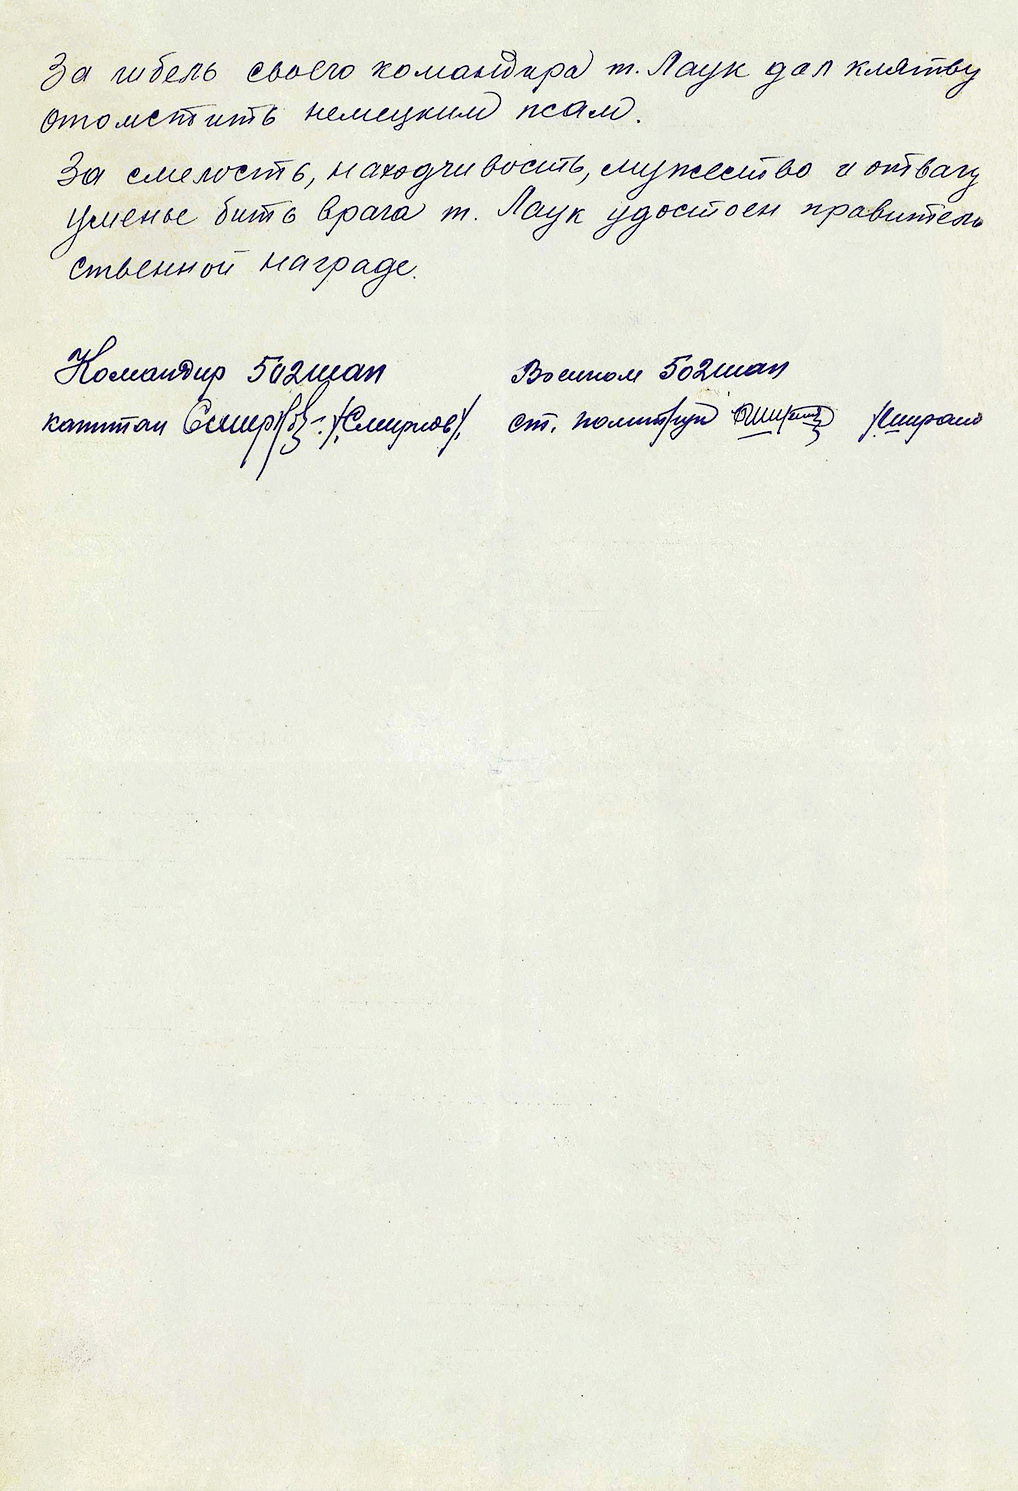 За гибель своего командира т. Лаук дал клятву
отомстить немецким псам.
За смелость, находчивость, мужество и отвагу
уменье бить врага т. Лаук удостоен правитель
ственной награде.
Командир 502шап Военком 502шап
капитан /Смирнов/ ст. политрук